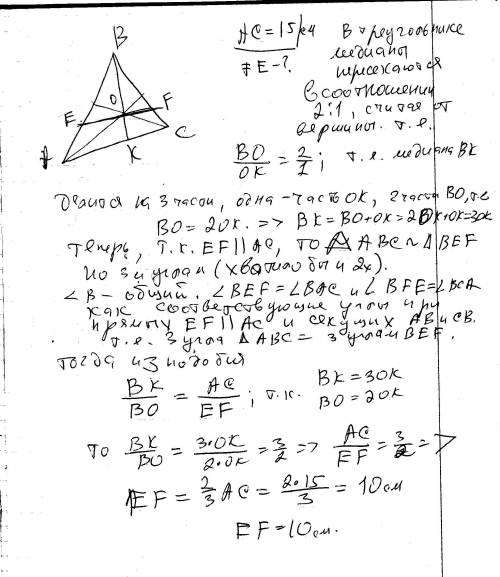 B
O
E
F
A
K
C
AC=15см
FE-?
В треугольнике
медианы
пересекаются
в соотношении
2:1, считая от
вершины. т.е.
BO/OK = 2/1; т.е. медиана BK
делится на 3 части, одна-часть OK, 2 части BO, т.е
BO=2OK. => BK=BO+OK=2OK+OK=3OK
теперь, т.к. EF||AC, то ΔABC~ΔBEF
по 3 углам (хватило бы и 2х).
∠B-общий. ∠BEF=∠BAC и ∠BFE=∠BCA
как соответствующие углы при
прямых EF||AC и секущих AB и CB.
т.е. 3 угла ΔABC= 3 углам BEF.
тогда из подобия
BK/BO = AC/EF; т.к. BK=3OK
BO=2OK
то BK/BO = 3·OK/2·OK = 3/2 => AC/EF = 3/2 =>
EF = 2/3 AC = 2·15/3 = 10см
EF=10см.